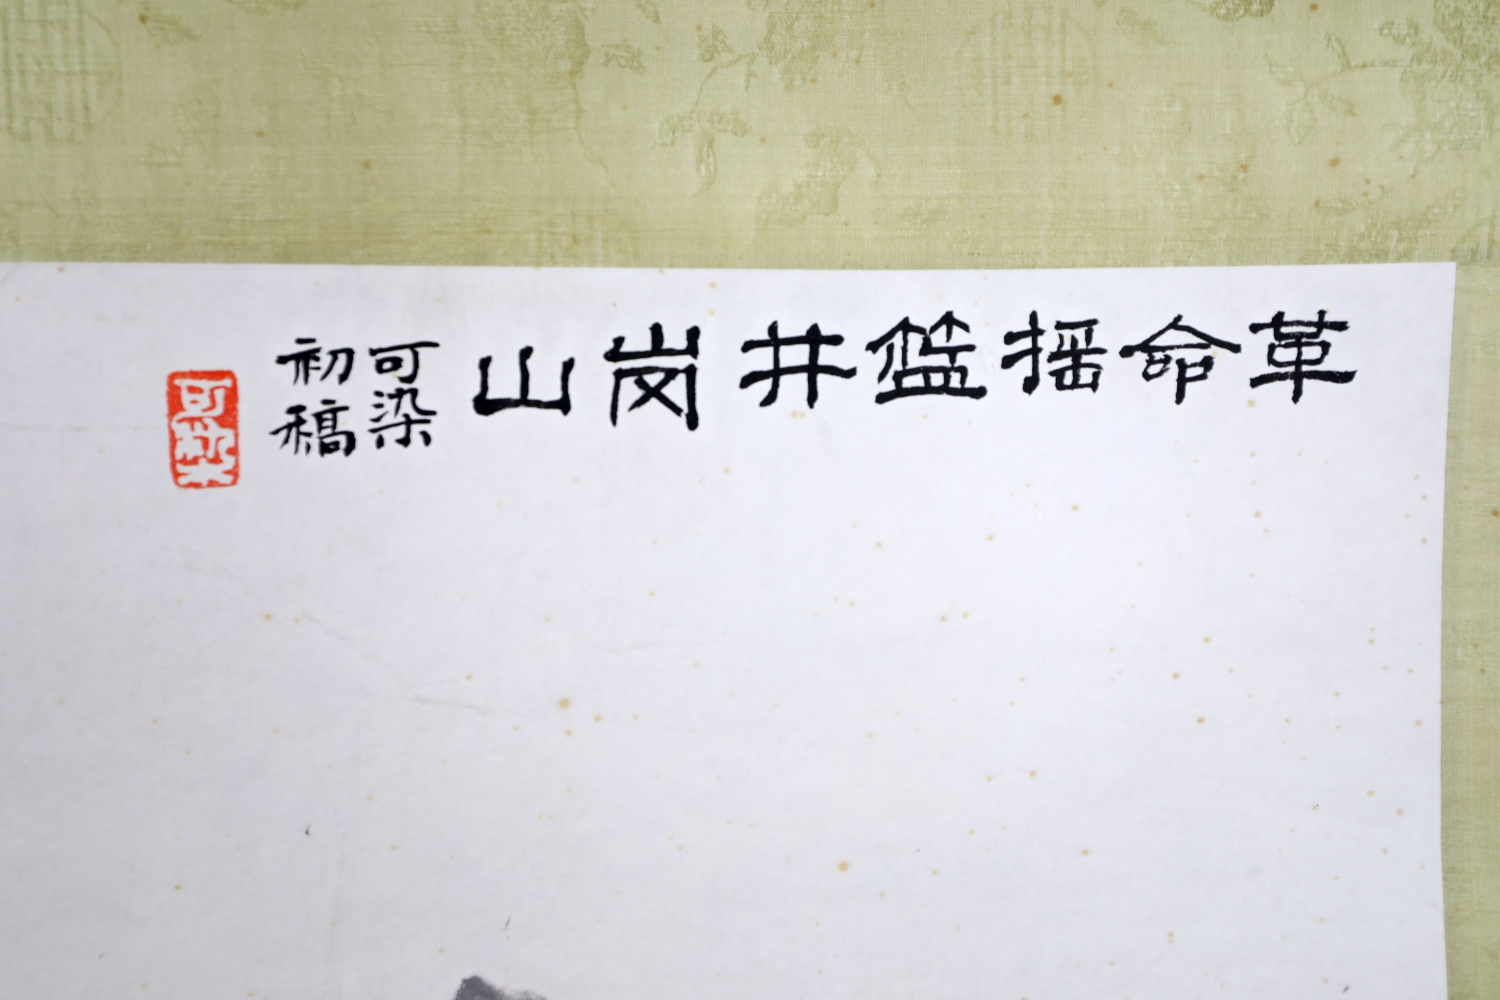 革命摇篮井岗山
可染
初稿
可染